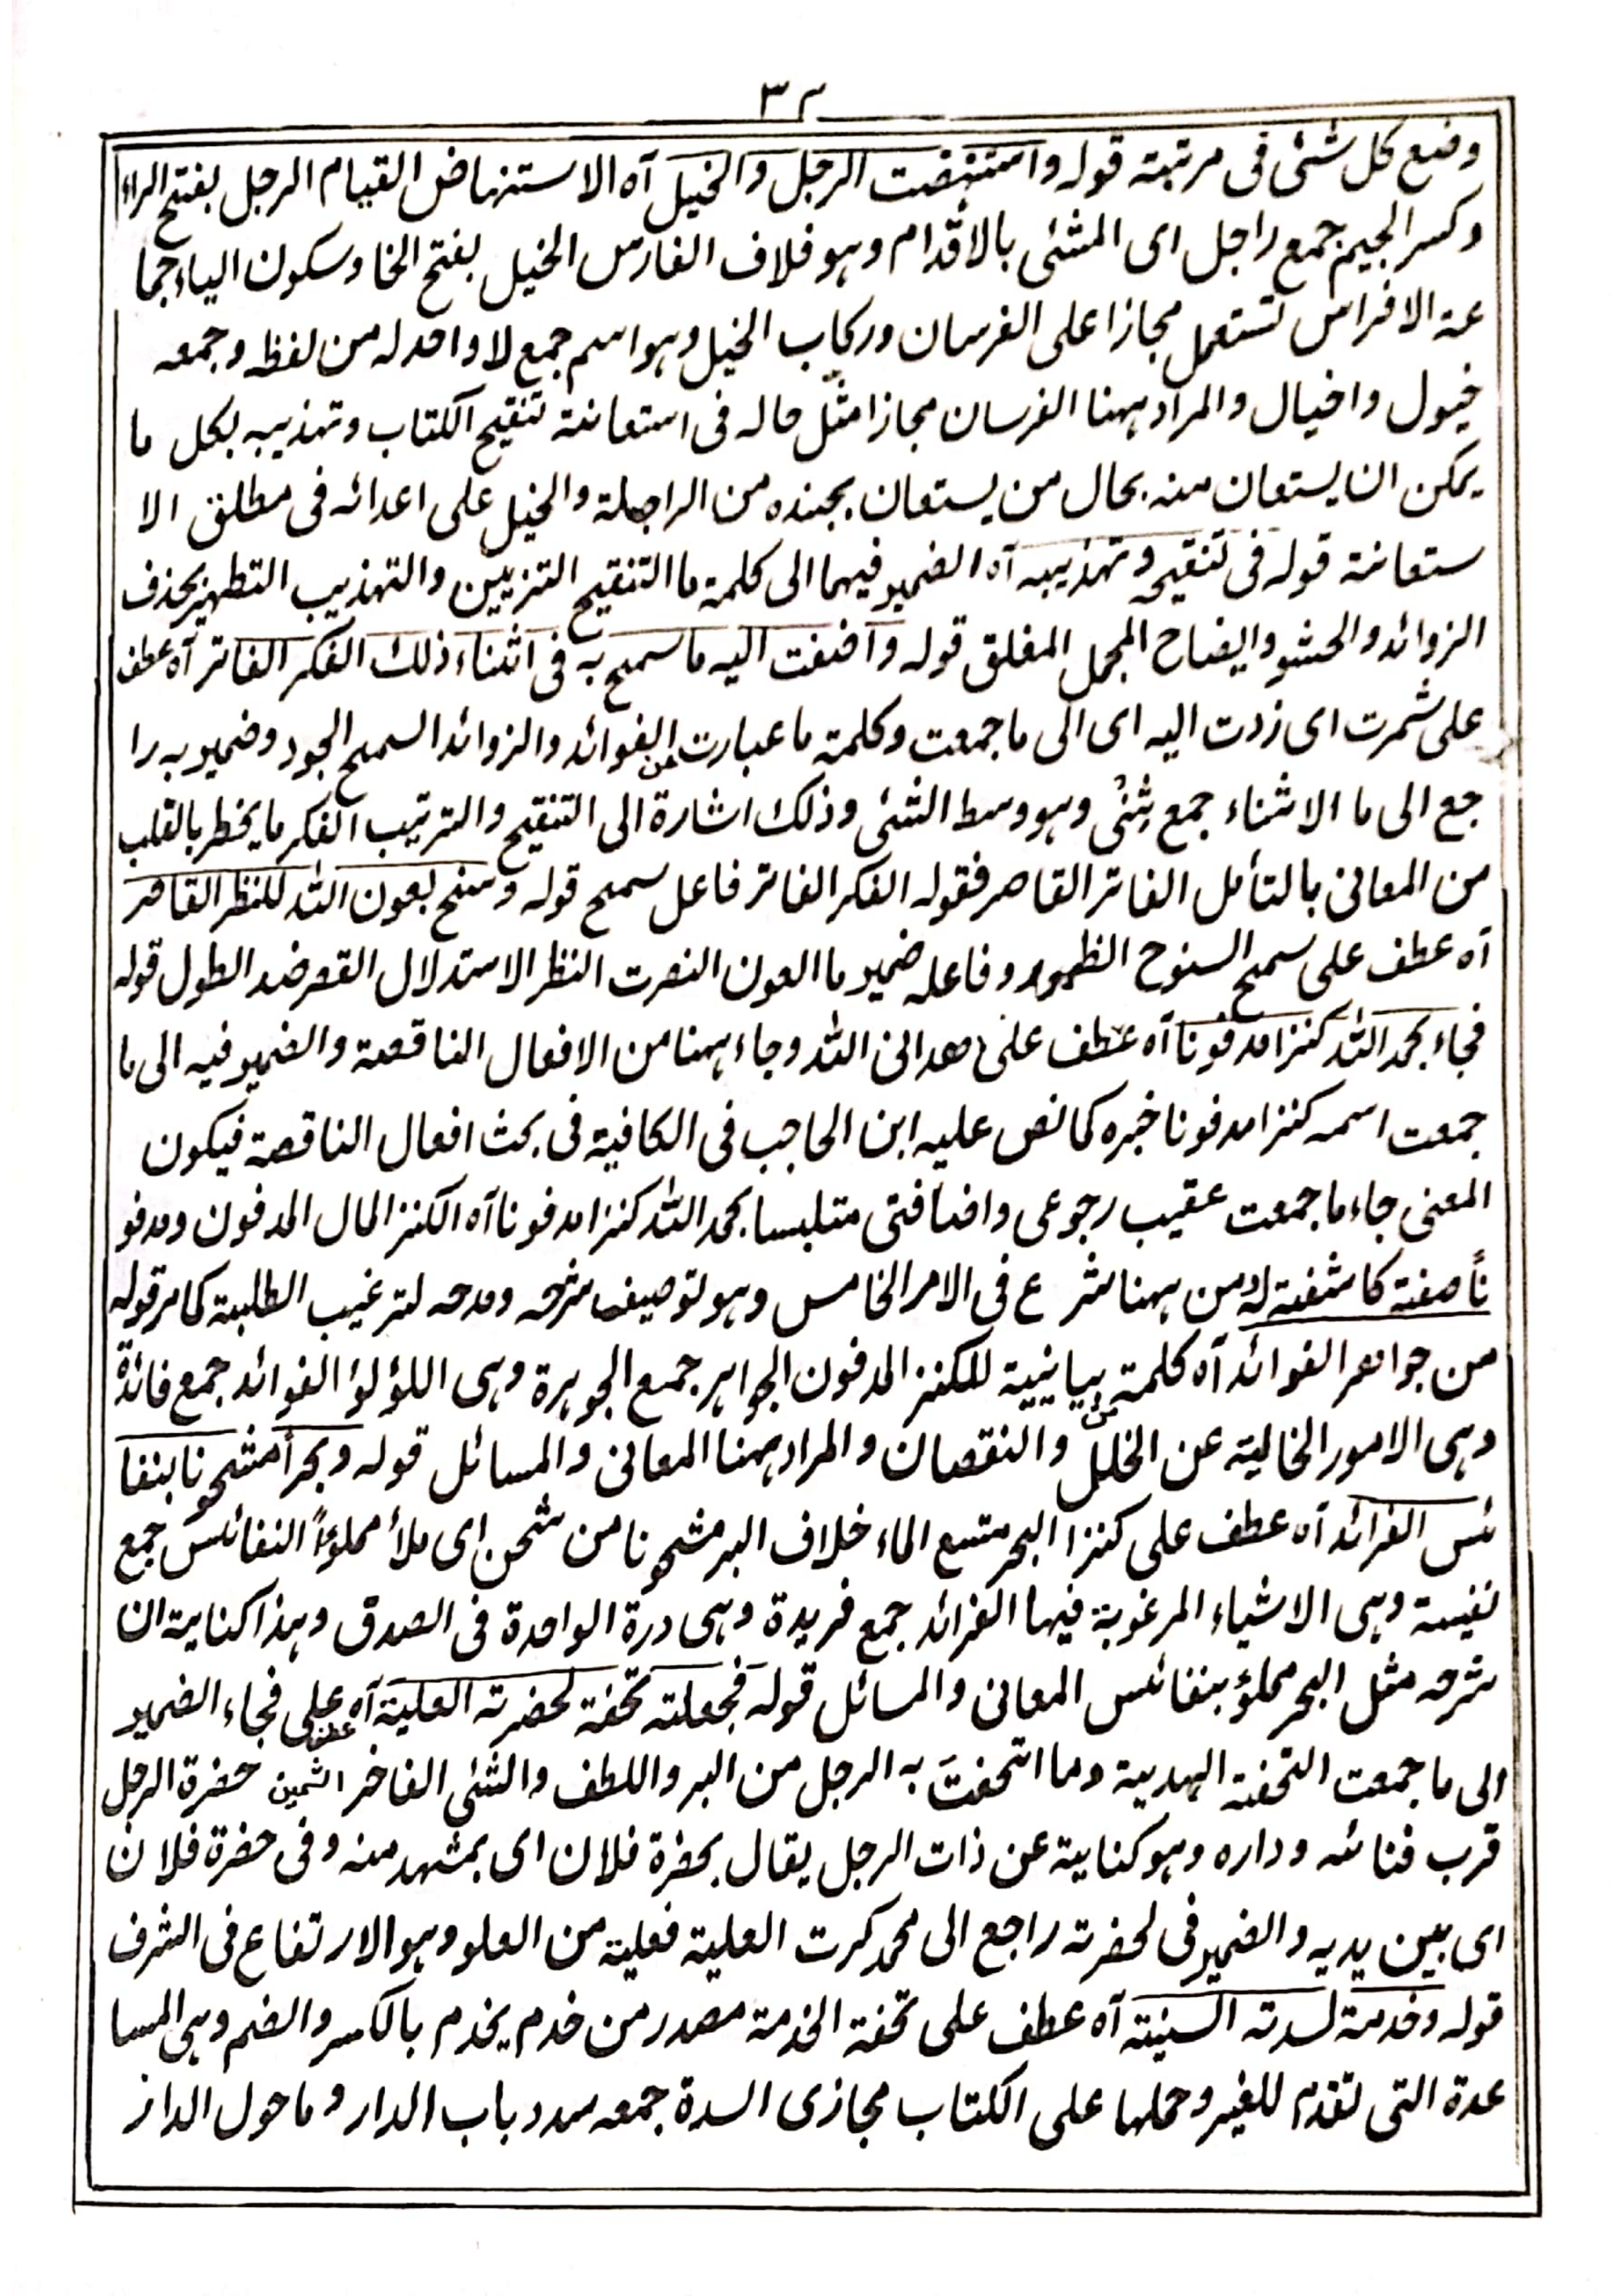 ٣٢
وضع كل شئى فى مرتبته قوله واستنهضت الرجل والخيل آه الاستنهاض القيام الرجل بفتح الراء
وكسر الجيم جمع راجل اى المشئى بالاقدام وہو فلاف الفارس الخيل بفتح الخا وسكون الياء جما
عة الافراس تستعمل مجازا على الفرسان وركاب الخيل وہو اسم جمع لا واحد له من لفظه وجمعه
خيول واخيال والمراد ہہنا الفرسان مجازا مثّل حاله فى استعانة تنقيح الكتاب وتهذيبه بكل ما
يمكن ان يستعان منه بحال من يستعان بجنده من الراجلة والخيل على اعدائه فى مطلق الا
ستعانة قوله فى تنقيحه وتهذيبه آه الضمير فيهما الى كلمة ما التنقيح التزيين والتهذيب التطهير بحذف
الزوائد والحشو وايضاح المجمل المغلق قوله واضفت اليه ما سمح به فى اثناء ذلك الفكر الفاتر آه عطف
على شمرت اى زدت اليه اى الى ما جمعت وكلمة ما عبارت عن الفوائد والزوائد السمح الجود وضمير به را
جع الى ما الاثناء جمع ثِنْى وہو وسط الشئى وذلك اشارة الى التنقيح والترتيب الفكر ما يخطر بالقلب
من المعانى بالتأمل الفاتر القاصر فقوله الفكر الفاتر فاعل سمح قوله وسنح بعون الله للنظر القاصر
آه عطف على سمح السنوح الظهور وفاعله ضمير ما العون النصرت النظر الاستدلال القصر ضد الطول قوله
فجاء بحمد الله كنزا مدفونا آه عطف على هدانى الله وجاء ہہنا من الافعال الناقصة والضمير فيه الى ما
جمعت اسمه كنزا مدفونا خبره كما نص عليه ابن الحاجب فى الكافية فى بحث افعال الناقصة فيكون
المعنى جاء ما جمعت عقيب رجوعى واضافتى متلبسا بحمد الله كنزا مدفونا آه الكنز المال المدفون ومدفو
ناً صفة كاشفة له ومن ہہنا شرع فى الامر الخامس وہو توصيف شرحه ومدحه لترغيب الطلبة كما مر قوله
من جواہر الفوائد آه كلمة من بيانيية للكنز المدفون الجواہر جمع الجوہرة وہى اللؤلؤ الفوائد جمع فائدة
وہى الامور الخالية عن الخلل والنقصان والمراد ہہنا المعانى والمسائل قوله وبحراً مشحونا بنفا
ئس الفرائد آه عطف على كنزا البحر متسع الماء خلاف البر مشحونا من شحن اى ملأ مملوءاً النفائس جمع
نفيسة وہى الاشياء المرغوبة فيها الفرائد جمع فريدة وہى درة الواحدة فى الصدق وہذا كناية ان
شرحه مثل البحر مملؤ بنفائس المعانى والمسائل قوله فجعلته تحفة لحضرته العلية آه عطف على فجاء الضمير
الى ما جمعت التحفة الهدية وما اتحفت به الرجل من البر واللطف والشئى الفاخر الثمين حضرة الرجل
قرب فنائه وداره وہو كناية عن ذات الرجل يقال بحضرة فلان اى بمشهد منه وفى حضرة فلان
اى بين يديه والضمير فى لحضرته راجع الى محمد كرت العلية فعلية من العلو وہو الارتفاع فى الشرف
قوله وخدمة لسدته السنية آه عطف على تحفة الخدمة مصدر من خدم يخدم بالكسر والضم وہى المسا
عدة التى تقدم للغير وحملها على الكتاب مجازى السدة جمعه سدد باب الدار وما حول الدار